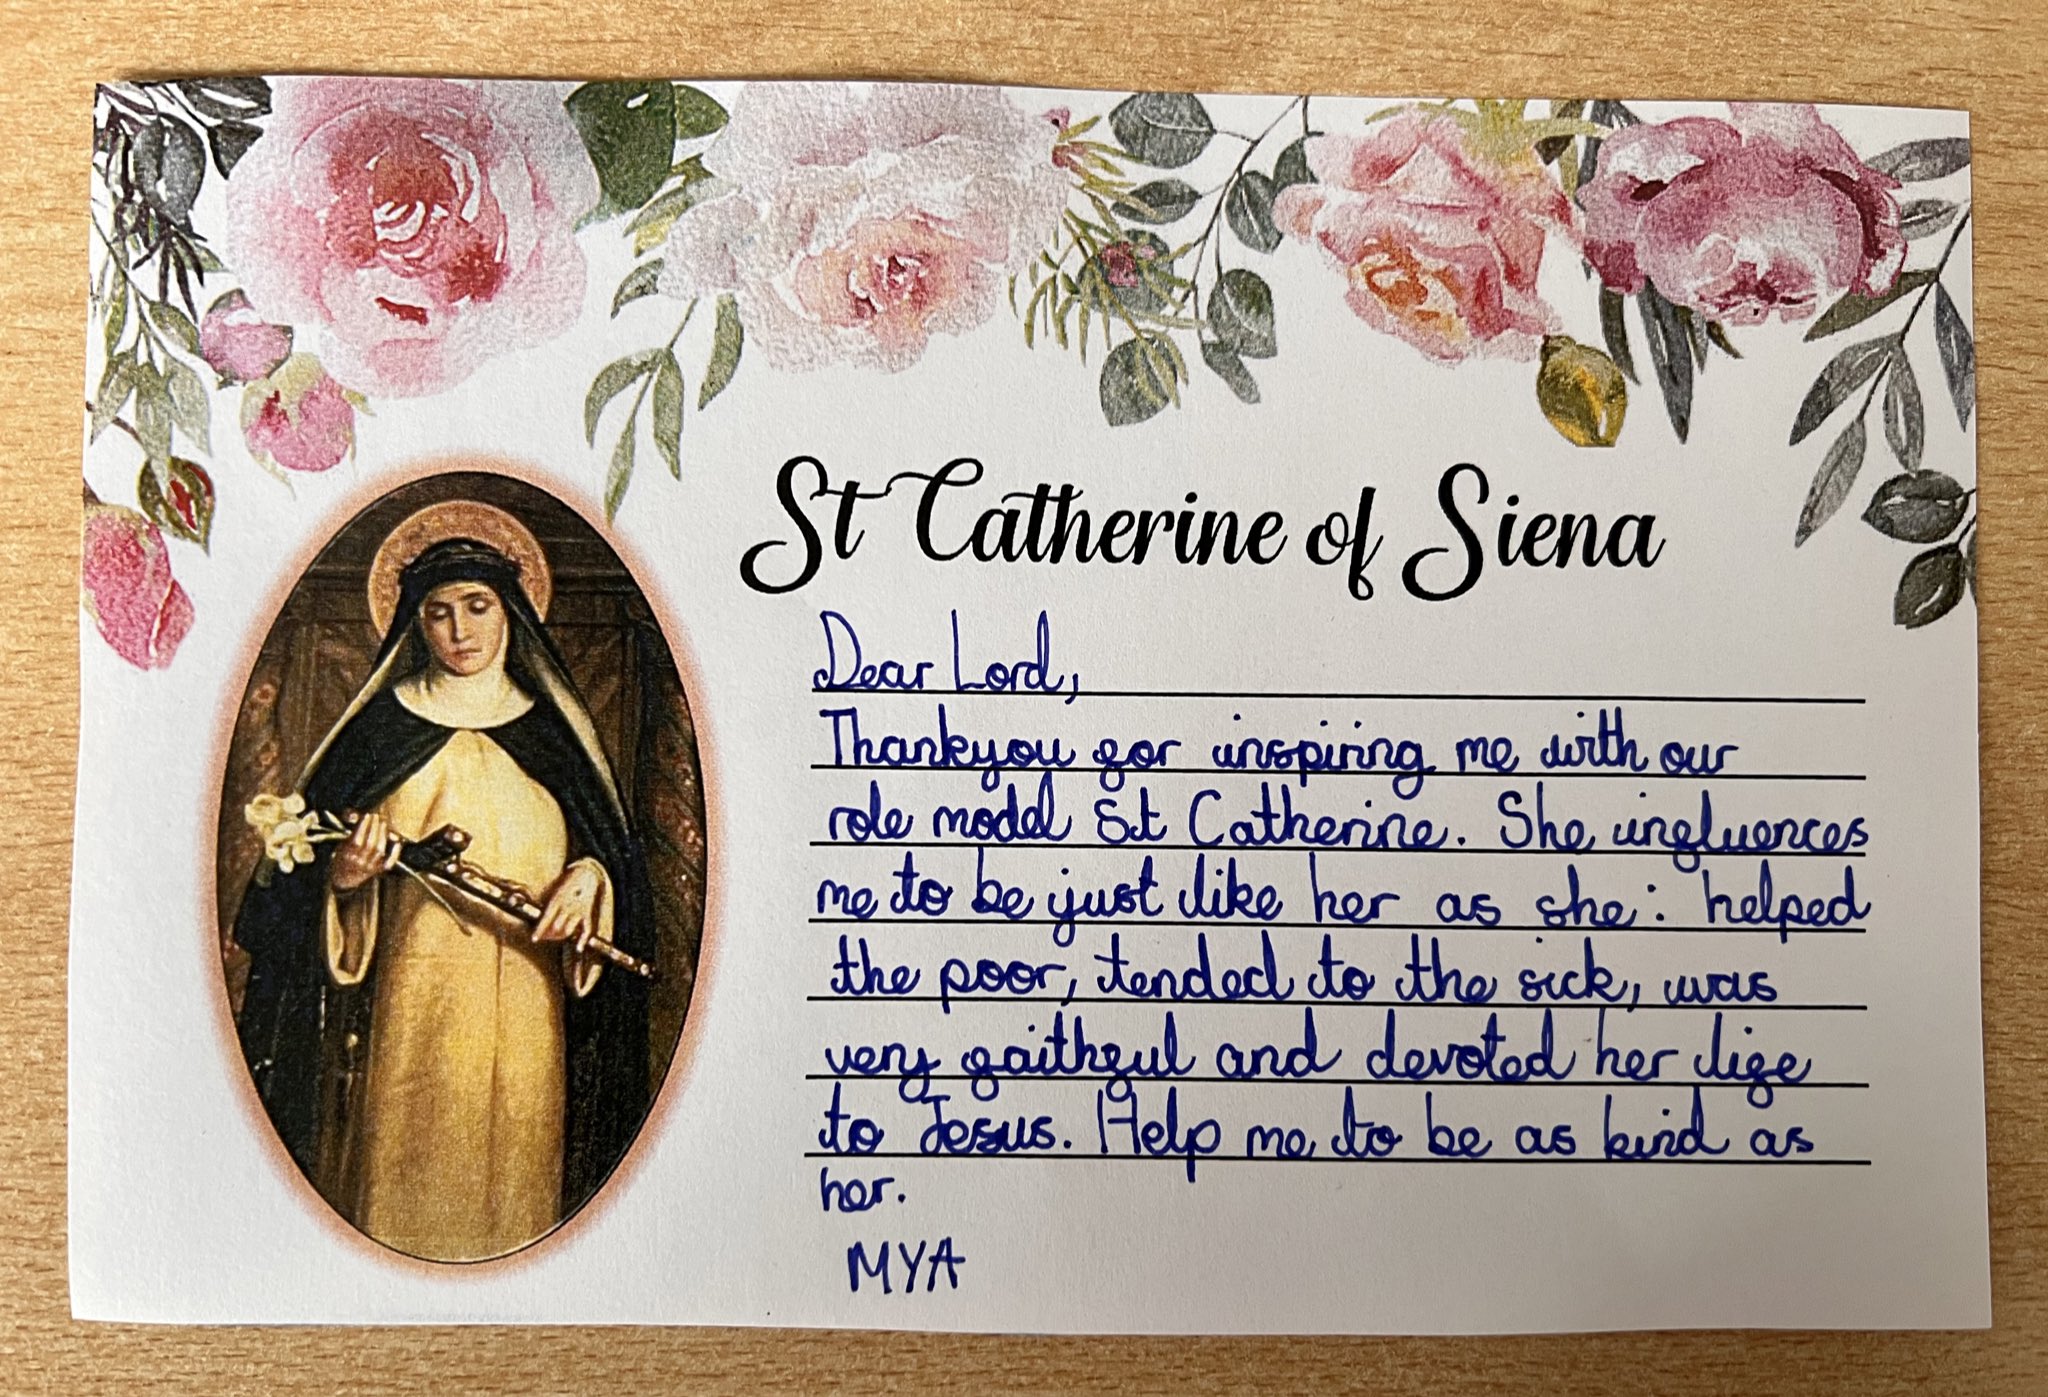 St Catherine of Siena
Dear Lord,
Thankyou for inspiring me with our
role model St Catherine. She influences
me to be just like her as she: helped
the poor, tended to the sick, was
very faithful and devoted her life
to Jesus. Help me to be as kind as
her.
MYA